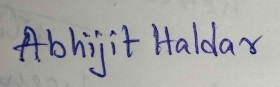 Abhijit Haldar